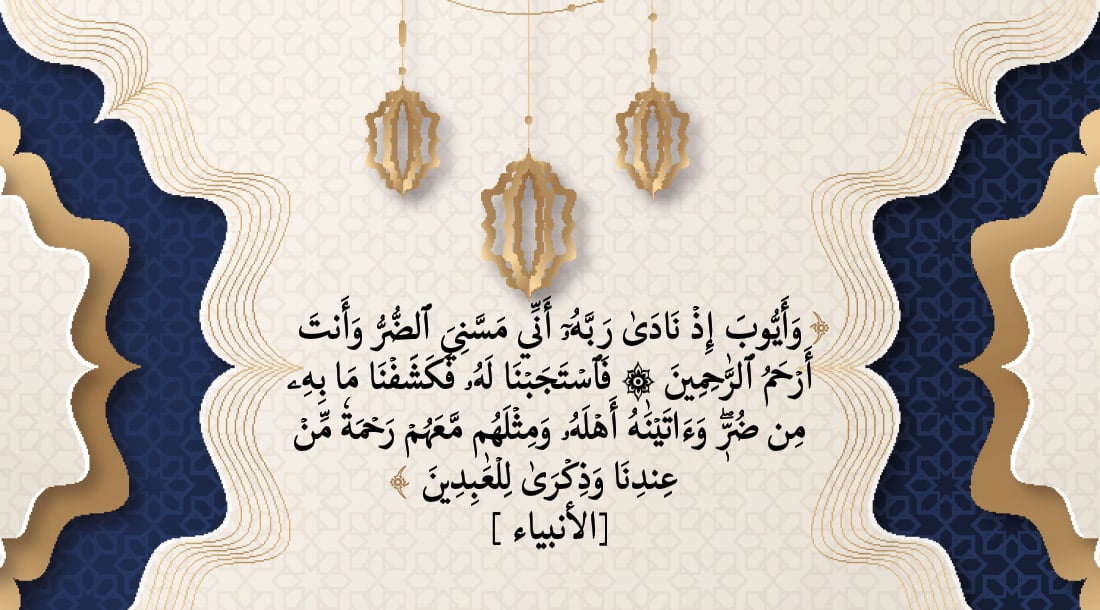 ﴿ وَأَيُّوبَ إِذۡ نَادَىٰ رَبَّهُۥٓ أَنِّي مَسَّنِيَ ٱلضُّرُّ وَأَنتَ
أَرۡحَمُ ٱلرَّٰحِمِينَ ۞ فَٱسۡتَجَبۡنَا لَهُۥ فَكَشَفۡنَا مَا بِهِۦ
مِن ضُرّٖۖ وَءَاتَيۡنَٰهُ أَهۡلَهُۥ وَمِثۡلَهُم مَّعَهُمۡ رَحۡمَةٗ مِّنۡ
عِندِنَا وَذِكۡرَىٰ لِلۡعَٰبِدِينَ ﴾
[الأنبياء ]